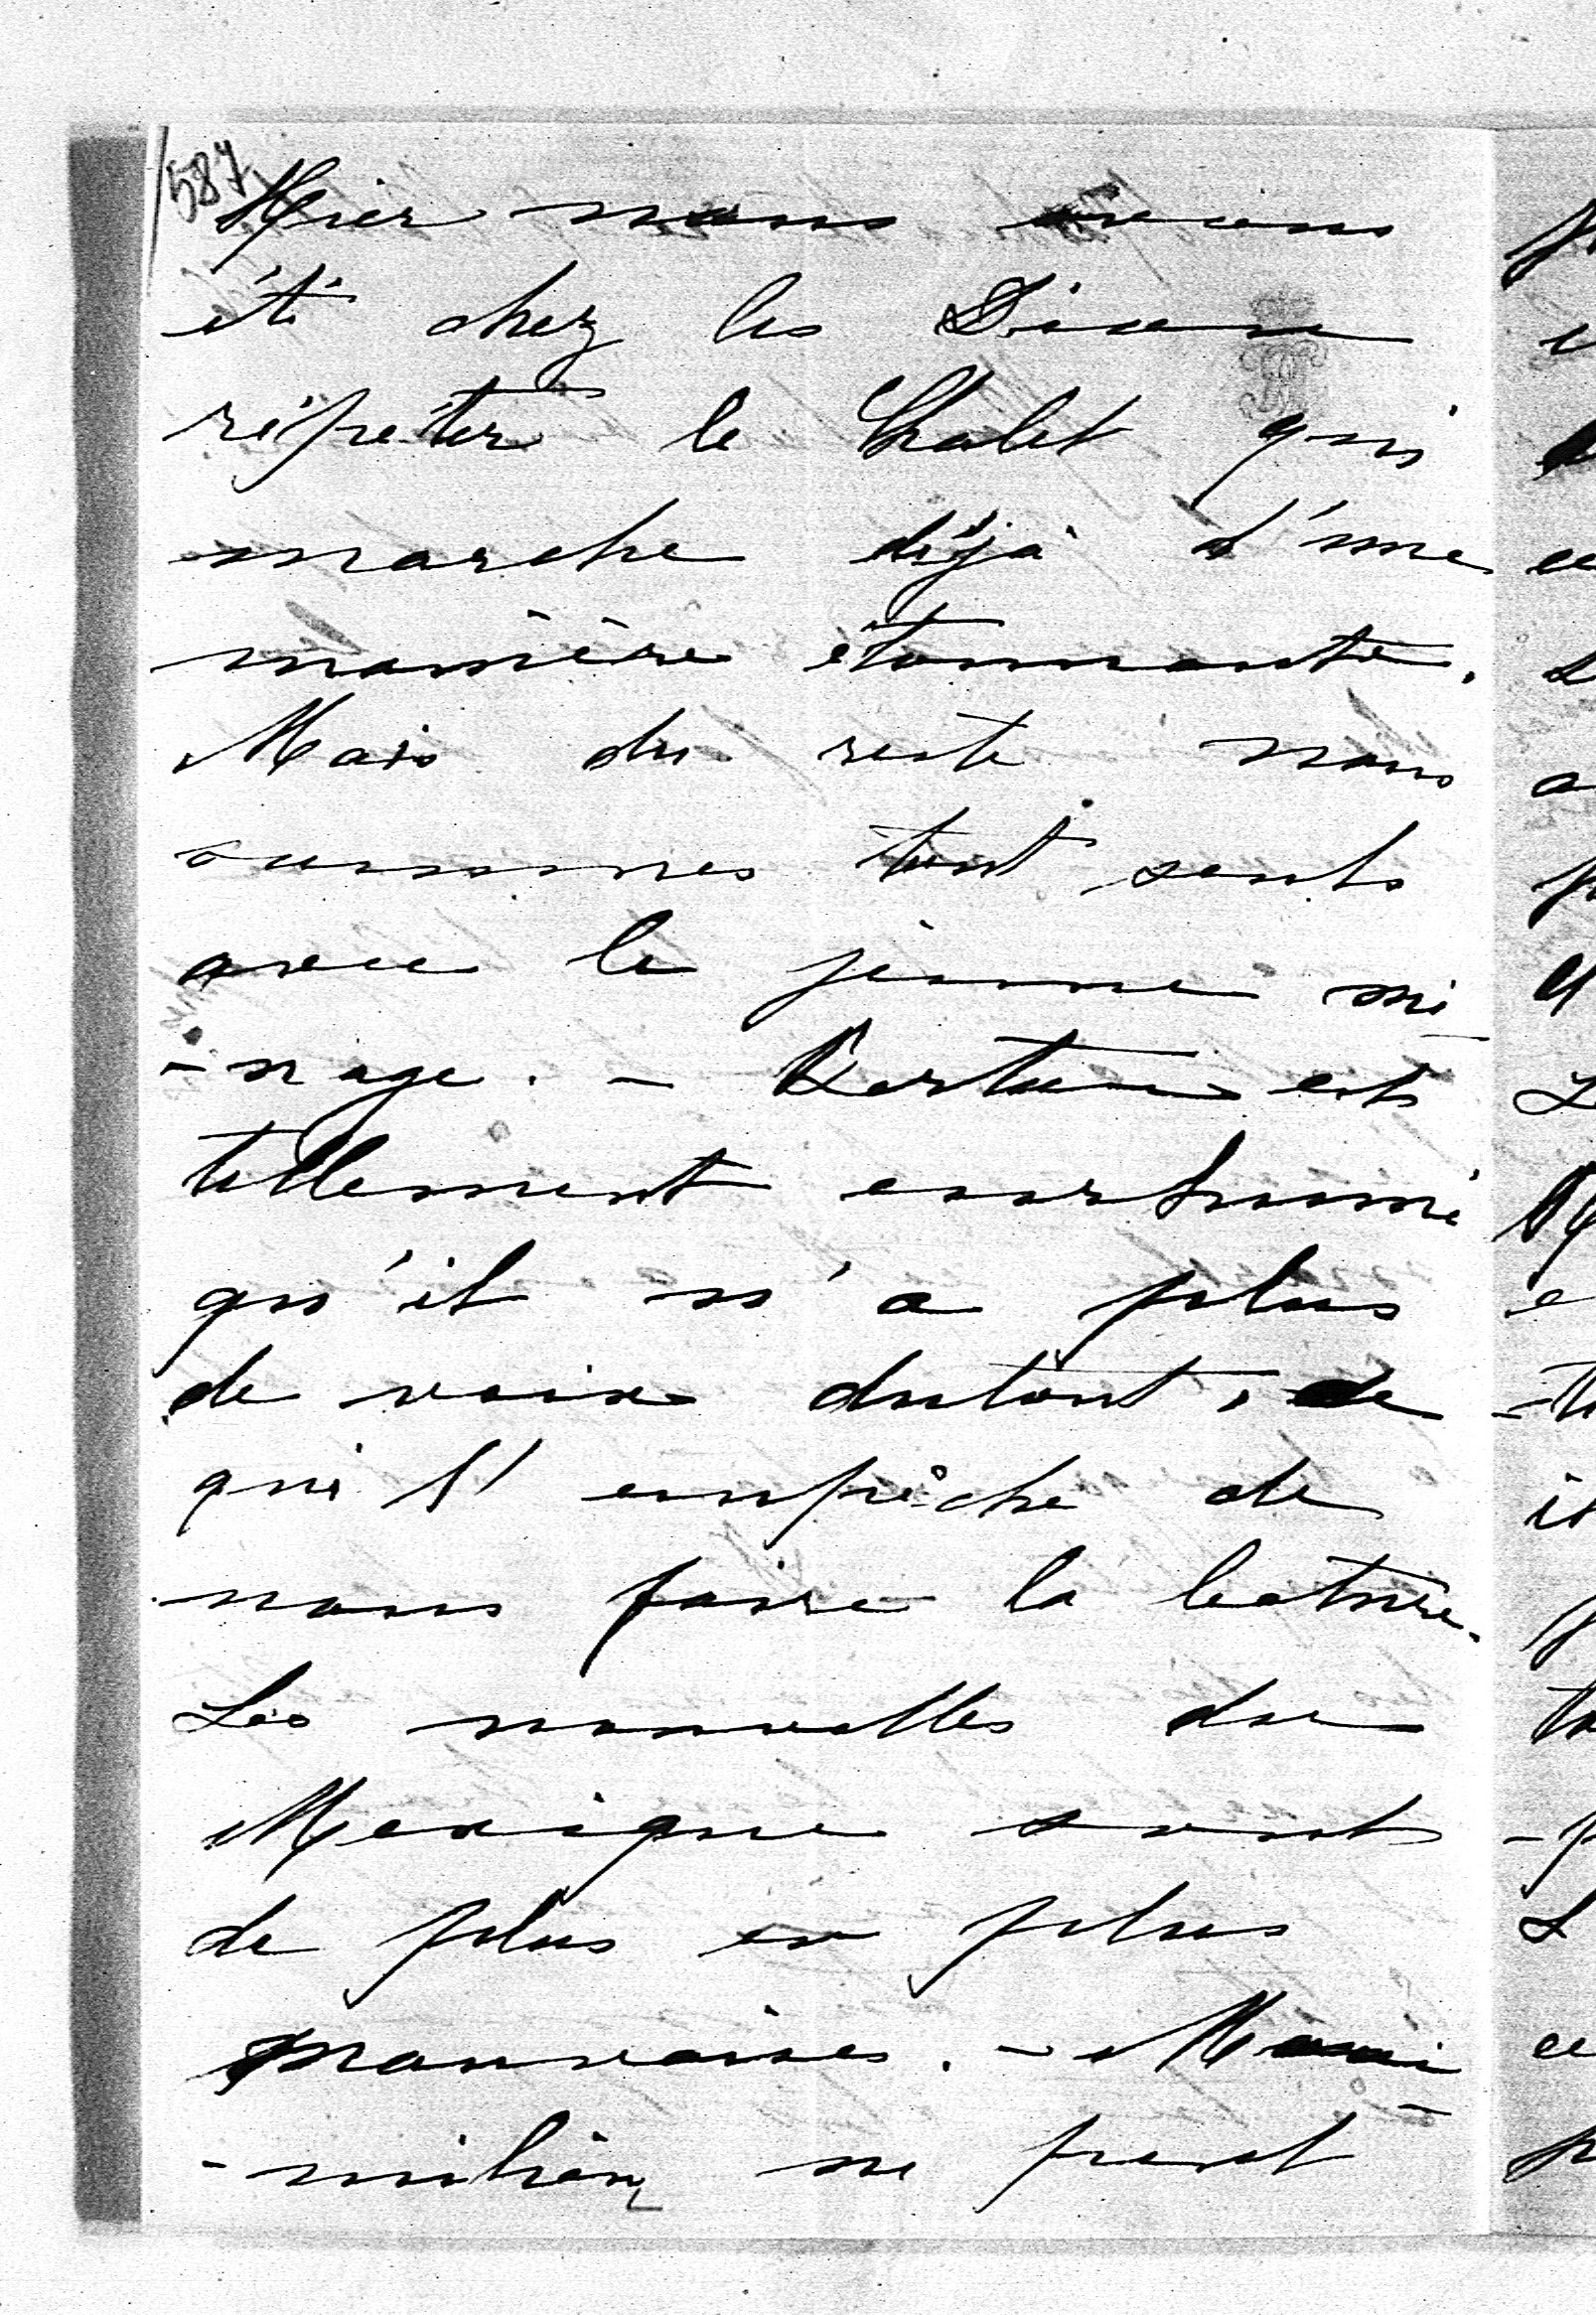 587
Hier nous avons
été chez les
répéter le Chalet qui
marche déjà d'une
manière étonnante.
Mais du reste nous
sommes tout seuls
avec le jeune mé-
-nage. - est
tellement enrhumé
qu'il n'a plus
de voix dutout, ce
qui l'empêche de
nous faire la lecture.
Les nouvelles du
Mexique sont
de plus en plus
mauvaises. - Maxi-
-milien ne peut